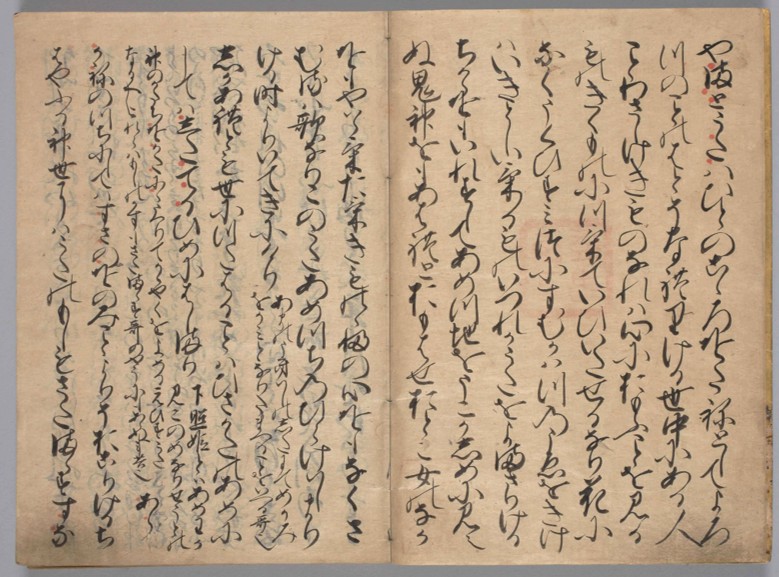 やまとうたはひとのこゝろをたねとしてよろ
つのことのはとそなれりける世中にある人
ことわさしけきものなれは心におもふことを見る
ものきくものにつけていひいたせるなり花に
なくうくひすみつにすむかはつのこゑをきけ
はいきとしいけるものいつれかうたをよまさりける
ちからをもいれすしてあめつ地をうこかしめに見え
ぬ鬼神をもあはれとおもはせおとこ女のなか
をもやはらけたけきものゝふの心をもなくさ
むるは歌なりこのうたあめつちのひらけはしまり
ける時よりいてきにけり
あまのうきはしのしたにてめかみ
をかみとなりたまへることをいへる哥也
しかあれとも世につたはることはひさかたのあめに
してはしたてるひめにはしまり
下照姫とはあめわか
みこのめなりせうとの
神のかたちをかたににうつりてかゝやくをよめるえひすうた
なるへしこれらはもしのかすもさたまらす哥のやうにもあらぬ あら
かねのつちにてはすさのをのみことよりそおこりけるち
はやふる神世にはうたのもしもさたまらすすな